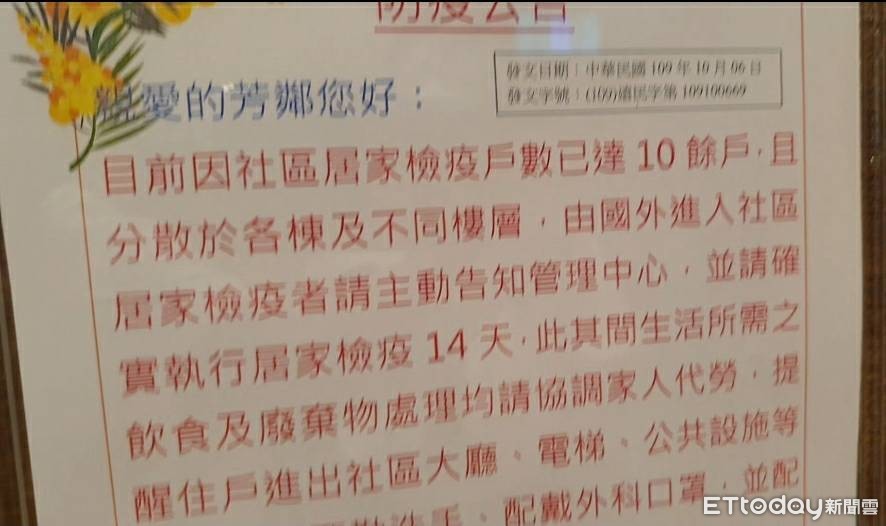 防疫公告
發文日期：中華民國 109 年 10 月 06 日
發文字號：(109)遠民字第 109100669
親愛的芳鄰您好：
目前因社區居家檢疫戶數已達 10 餘戶，且
分散於各棟及不同樓層，由國外進入社區
居家檢疫者請主動告知管理中心，並請確
實執行居家檢疫 14 天，此其間生活所需之
飲食及廢棄物處理均請協調家人代勞，提
醒住戶進出社區大廳、電梯、公共設施等
洗手、配戴外科口罩，並配
ETtoday新聞雲